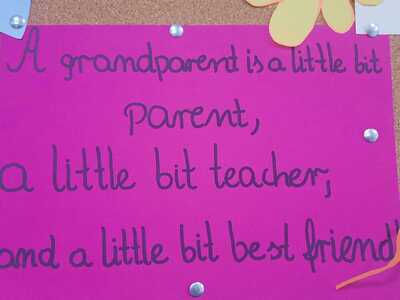 A grandparent is a little bit
parent,
a little bit teacher,
and a little bit best friend!